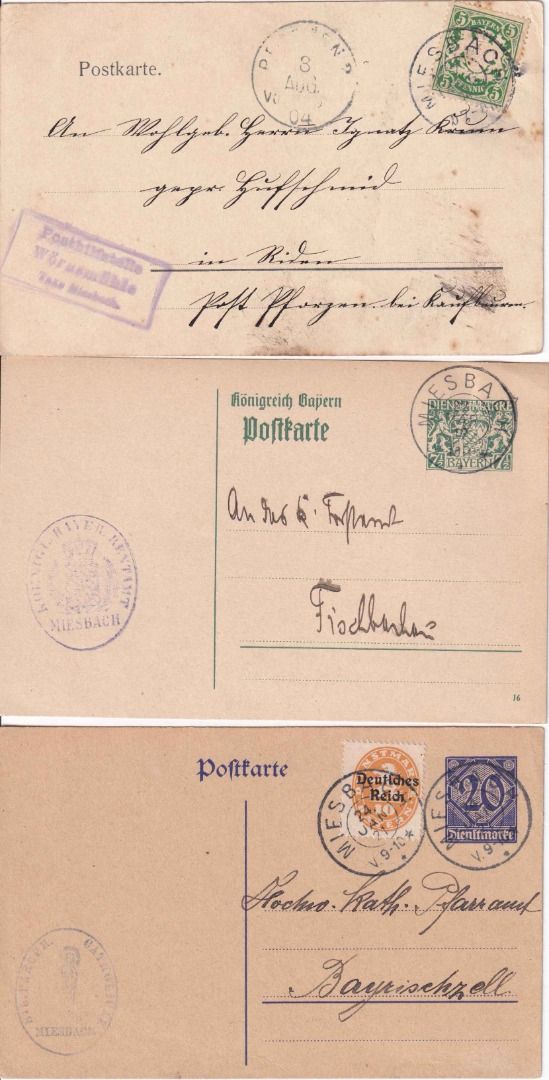 Postkarte.
8
AUG.
04
5 BAYERN 5
5 PFENNIG 5
MIESBACH
An Wohlgeb. Herrn Ignatz
gepr. Hufschmid
in Rieden
Post Pforzen bei Kaufbeuren.
Posthilfstelle
Wörnsmühle
Taxe Miesbach.
Königreich Bayern
Postkarte
MIESBACH
DIENSTMARKE
7½ BAYERN 7½
An das K. Forstamt
Fischbachau
KOENIGL. BAYER. RENTAMT
MIESBACH
16
Postkarte
DIENSTMARKE
Deutsches
Reich
BAYERN
20
Dienstmarke
MIESBACH
24. JAN.
V. 9-10
MIESBACH
V. 9-10
Hochw. Kath. Pfarramt
Bayrischzell
MIESBACH